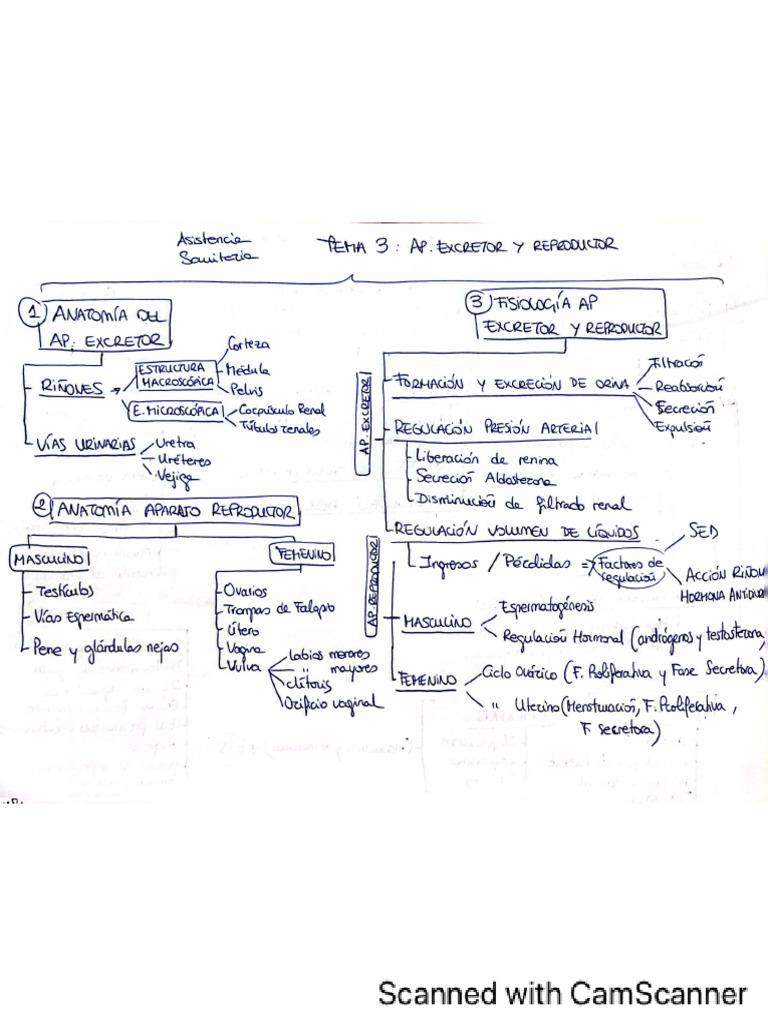 Asistencia
Sanitaria
TEMA 3: AP. EXCRETOR Y REPRODUCTOR
1 ANATOMÍA DEL
AP. EXCRETOR
RIÑONES
ESTRUCTURA
MACROSCÓPICA
Corteza
Médula
Pelvis
E. MICROSCÓPICA
Corpúsculo Renal
Túbulos renales
VÍAS URINARIAS
Uretra
Uréteres
Vejiga
2 ANATOMÍA APARATO REPRODUCTOR
MASCULINO
Testículos
Vías Espermática
Pene y glándulas nejas
FEMENINO
Ovarios
Trompas de Falopio
Útero
Vagina
Vulva
labios menores
" mayores
clítoris
Orificio vaginal
3 FISIOLOGÍA AP
EXCRETOR Y REPRODUCTOR
AP. EXCRETOR
FORMACIÓN Y EXCRECIÓN DE ORINA
Filtración
Reabsorción
Secreción
Expulsión
REGULACIÓN PRESIÓN ARTERIAL
Liberación de renina
Secreción Aldosterona
Disminución de filtrado renal
REGULACIÓN VOLUMEN DE LÍQUIDOS
Ingresos / Pérdidas => Factores de
regulación
SED
ACCIÓN RIÑON
HORMONA
AP. REPRODUCTOR
MASCULINO
Espermatogénesis
Regulación Hormonal (andrógenos y testosterona,
FEMENINO
Ciclo Ovárico (F. Proliferativa y Fase Secretora)
" Uterino (Menstruación, F. Proliferativa,
F secretora)
Scanned with CamScanner